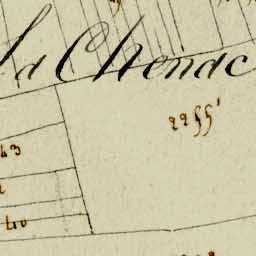 la Chenac
2255'
43
40